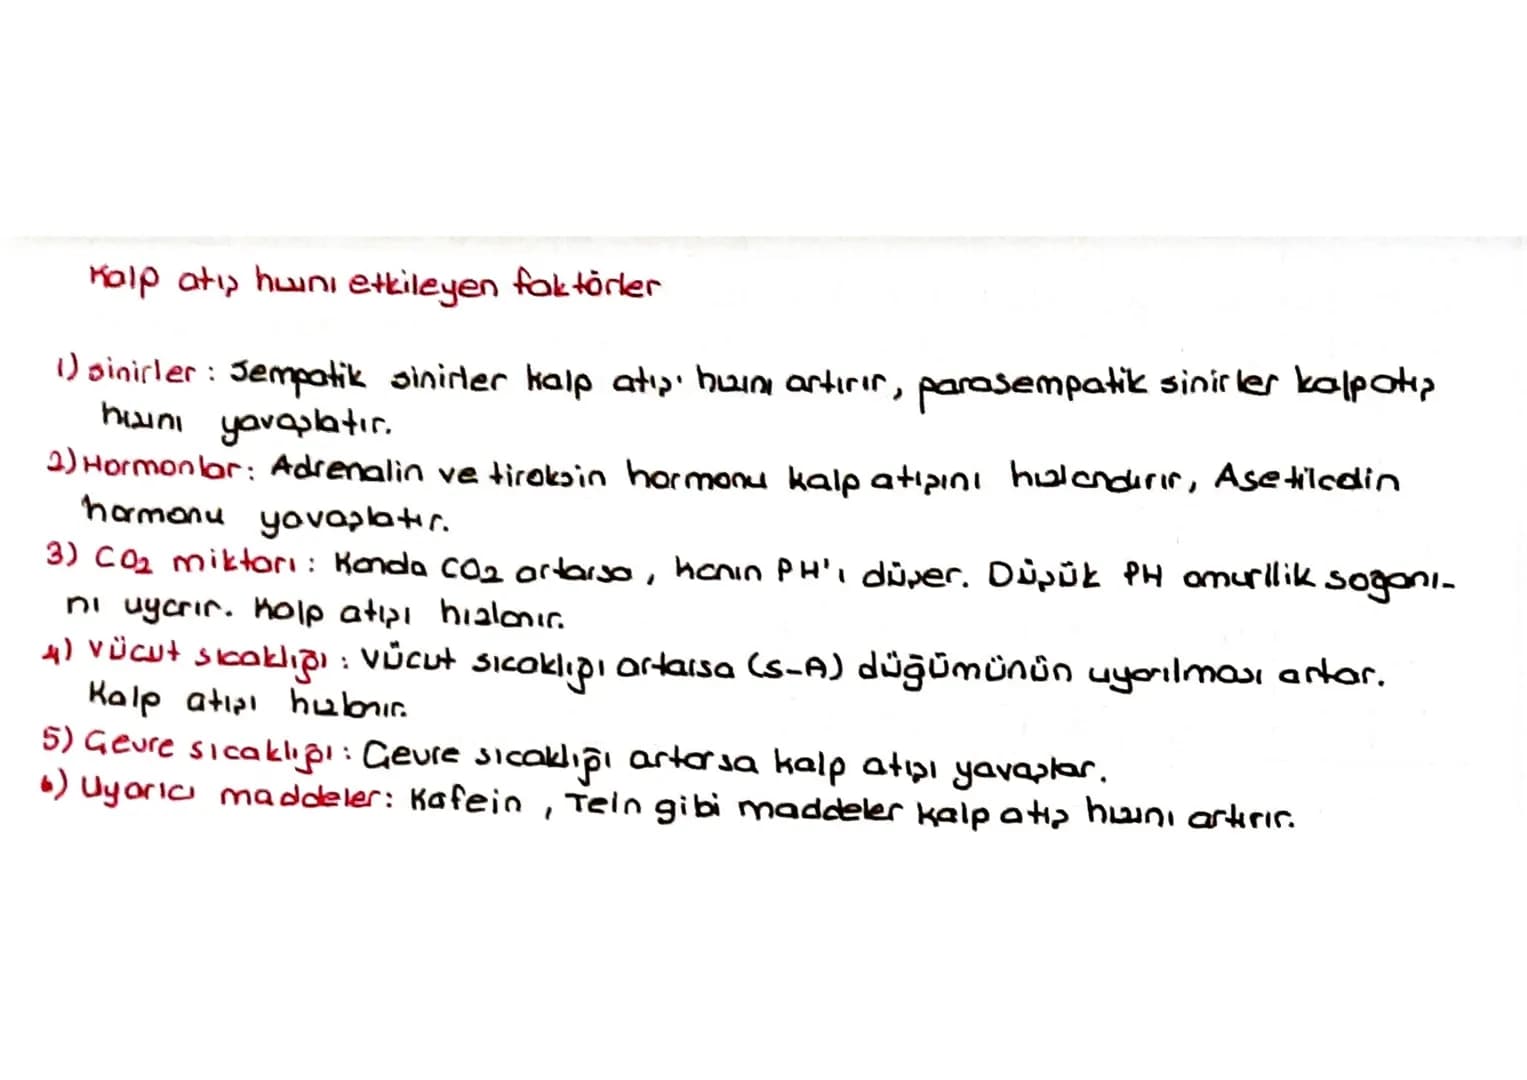 Kalp atış hızını etkileyen faktörler
1) sinirler : Sempatik sinirler kalp atış hızını artırır, parasempatik sinirler kalp atış
hızını yavaşlatır.
2) Hormonlar: Adrenalin ve tiroksin hormonu kalp atışını hızlandırır, Asetilcolin
hormonu yavaşlatır.
3) CO2 miktarı : Kanda CO2 artarsa, kanın PH'ı düşer. Düşük PH omurilik soğanı-
nı uyarır. Kalp atışı hızlanır.
4) Vücut sıcaklığı : Vücut sıcaklığı artarsa (S-A) düğümünün uyarılması artar.
Kalp atışı hızlanır.
5) Çevre sıcaklığı : Çevre sıcaklığı artarsa kalp atışı yavaşlar.
6) Uyarıcı maddeler: Kafein, Tein gibi maddeler kalp atış hızını artırır.